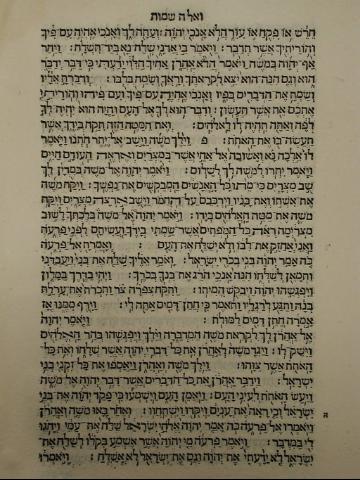 ואלה שמות
חרש או פקח או עור הלא אנכי יהוה: ועתה לך ואנכי אהיה עם פיך
והוריתיך אשר תדבר: ויאמר בי אדני שלח נא ביד תשלח: ויחר
אף יהוה במשה ויאמר הלא אהרן אחיך הלוי ידעתי כי דבר ידבר
הוא וגם הנה הוא יצא לקראתך וראך ושמח בלבו: ודברת אליו
ושמת את הדברים בפיו ואנכי אהיה עם פיך ועם פיהו והוריתי
אתכם את אשר תעשון: ודבר הוא לך אל העם והיה הוא יהיה לך
לפה ואתה תהיה לו לאלהים: ואת המטה הזה תקח בידך אשר
תעשה בו את האתת: פ וילך משה וישב אל יתר חתנו ויאמר
לו אלכה נא ואשובה אל אחי אשר במצרים ואראה העודם חיים
ויאמר יתרו למשה לך לשלום: ויאמר יהוה אל משה במדין לך
שב מצרים כי מתו כל האנשים המבקשים את נפשך: ויקח משה
את אשתו ואת בניו וירכבם על החמר וישב ארצה מצרים ויקח
משה את מטה האלהים בידו: ויאמר יהוה אל משה בלכתך לשוב
מצרימה ראה כל המפתים אשר שמתי בידך ועשיתם לפני פרעה
ואני אחזק את לבו ולא ישלח את העם: ואמרת אל פרעה
כה אמר יהוה בני בכרי ישראל: ואמר אליך שלח את בני ויעבדני
ותמאן לשלחו הנה אנכי הרג את בנך בכרך: ויהי בדרך במלון
ויפגשהו יהוה ויבקש המיתו: ותקח צפרה צר ותכרת את ערלת
בנה ותגע לרגליו ותאמר כי חתן דמים אתה לי: וירף ממנו אז
אמרה חתן דמים למולת: ויאמר יהוה
אל אהרן לך לקראת משה המדברה וילך ויפגשהו בהר האלהים
וישק לו: ויגד משה לאהרן את כל דברי יהוה אשר שלחו ואת כל
האתת אשר צוהו: וילך משה ואהרן ויאספו את כל זקני בני
ישראל: וידבר אהרן את כל הדברים אשר דבר יהוה אל משה
ויעש האתת לעיני העם: ויאמן העם וישמעו כי פקד יהוה את בני
ישראל וכי ראה את ענים ויקדו וישתחוו: ואחר באו משה ואהרן
ה
ויאמרו אל פרעה כה אמר יהוה אלהי ישראל שלח את עמי ויחגו
לי במדבר: ויאמר פרעה מי יהוה אשר אשמע בקלו לשלח את
ישראל לא ידעתי את יהוה וגם את ישראל לא אשלח: ויאמרו